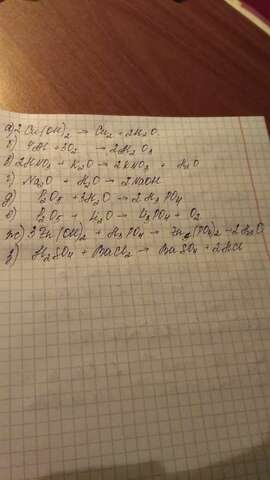 а) 2 Cu(OH)₂ → Cu₂ + 2H₂O
б) 4Al + 3O₂ → 2Al₂O₃
в) 2HNO₃ + K₂O → 2KNO₃ + H₂O
г) Na₂O + H₂O → 2NaOH
д) P₂O₅ + 3H₂O → 2H₃PO₄
е) P₂O₅ + H₂O → H₃PO₄ + O₂
ж) 3Zn(OH)₂ + H₃PO₄ → Zn₃(PO₄)₂ + 2H₂O
з) H₂SO₄ + BaCl₂ → BaSO₄ + 2HCl